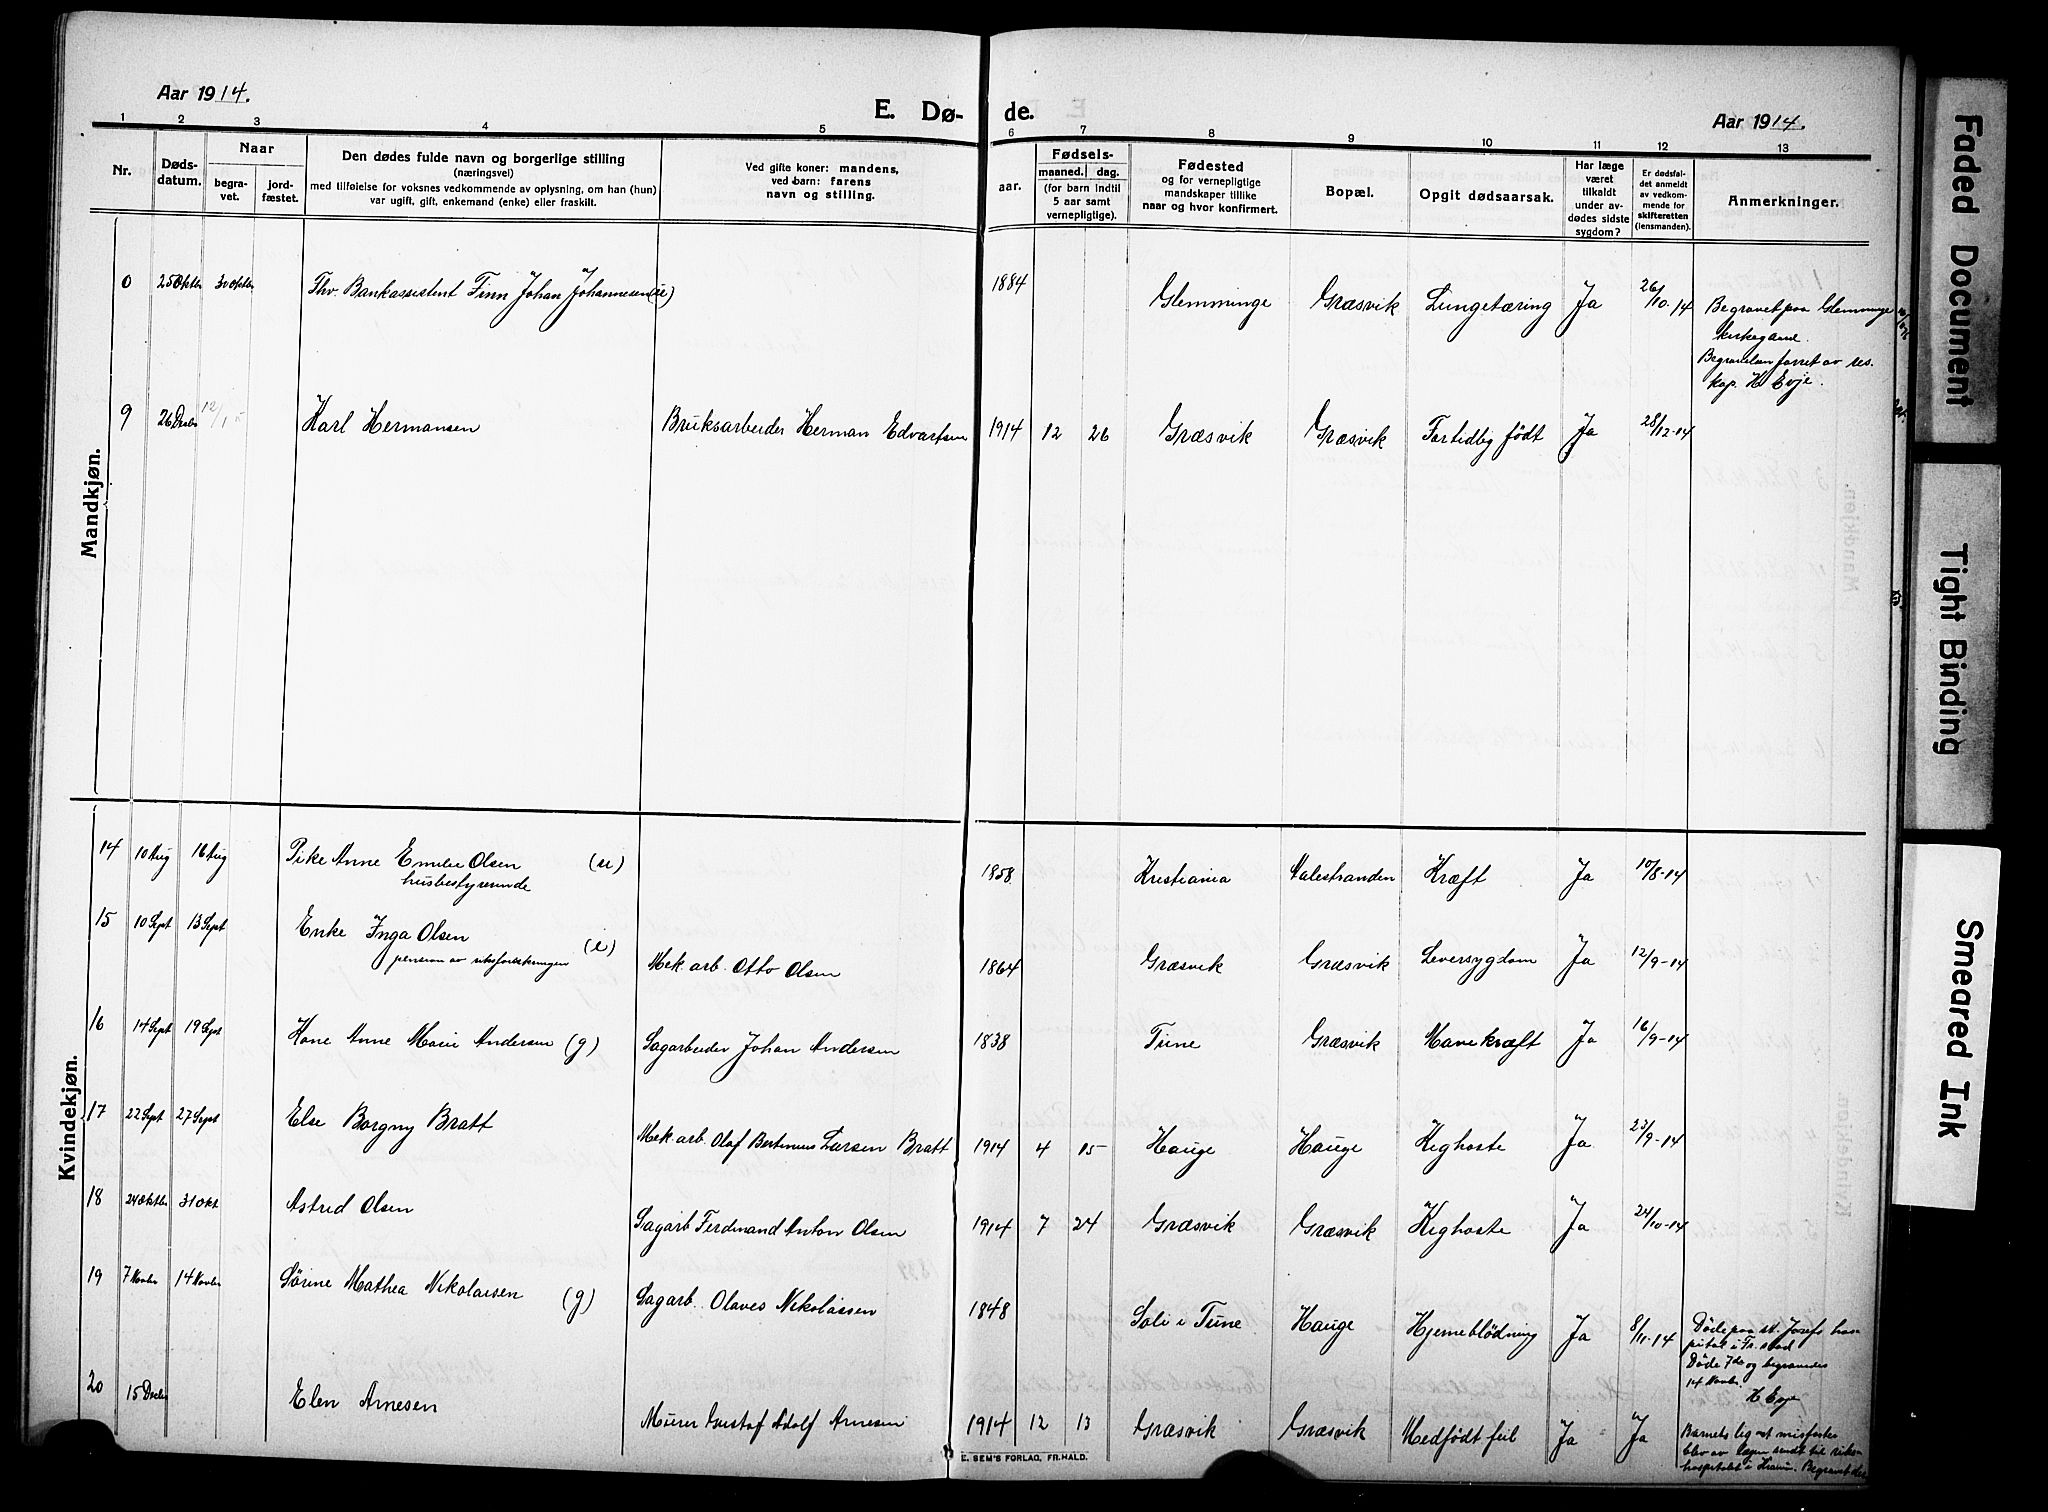 Aar 1914.
E. Dø- de.
Aar 1914.
1 2 3 4 5 6 7 8 9 10 11 12 13
Nr.
Døds-
datum.
Naar
begra-
vet.
jord-
fæstet.
Den dødes fulde navn og borgerlige stilling
(næringsvei)
med tilføielse for voksnes vedkommende av oplysning, om han (hun)
var ugift, gift, enkemand (enke) eller fraskilt.
Ved gifte koner: mandens,
ved barn: farens
navn og stilling.
aar.
Fødsels-
maaned. dag.
(for barn indtil
5 aar samt
vernepligtige).
Fødested
og for vernepligtige
mandskaper tillike
naar og hvor konfirmert.
Bopæl.
Opgit dødsaarsak.
Har læge
været
tilkaldt
under av-
dødes sidste
sygdom?
Er dødsfal-
det anmeldt
av vedkom-
mende for
skifteretten
(lensmanden).
Anmerkninger.
Mandkjøn.
0 25 Oktbr 30 Oktbr Fhv. Bankassistent Finn Johan Johannesen (u) 1884 Glemminge Græsvik Lungetæring Ja 26/10.14
Begravet paa Glemminge
kirkegaard.
Begravelsen forret av res.
kap. H Evje.
9 26 Decbr 12/1 15 Karl Hermansen Bruksarbeider Herman Edvartsen 1914 12 26 Græsvik Græsvik Fortidlig født Ja 28/12-14
Kvindekjøn.
14 10 Aug 16 Aug Pike Anne Emilie Olsen (u) 1858 Kristiania Valestranden Kræft Ja 10/8-14
husbestyrerinde
15 10 Sept 13 Sept Enke Inga Olsen (e) Mek. arb. Otto Olsen 1864 Græsvik Græsvik Leversygdom Ja 12/9-14
pension av riksforsikringen
16 14 Sept 19 Sept Kone Anne Marie Andersen (g) Sagarbeider Johan Andersen 1838 Tune Græsvik Mavekræft Ja 16/9-14
17 22 Sept 27 Sept Else Borgny Bratt Mek. arb. Olaf Bertinius Larsen Bratt 1914 4 15 Hauge Hauge Kighoste Ja 23/9-14
18 24 Oktbr 31 Okt Astrid Olsen Sagarb Ferdinand Anton Olsen 1914 7 24 Græsvik Græsvik Kighoste Ja 24/10-14
19 7 Novbr 14 Novbr Sörine Mathea Nikolaisen (g) Sagarb. Olaves Nikolaisen 1848 Soli i Tune Hauge Hjerneblödning Ja 8/11-14
Döde paa st. Josefs hos-
pital i Fr.stad
Döde 7de og begravedes
14 Novbr.
H Evje
20 15 Decbr Elen Arnesen Murer Gustaf Adolf Arnesen 1914 12 13 Græsvik Græsvik Medfödt feil Ja Ja
Barnets lig et misfoster
blev av lægen sendt til riks-
hospitalet i Krania. Begravet der
E. SEM'S FORLAG, FR.HALD.
Faded Document
Tight Binding
Smeared Ink